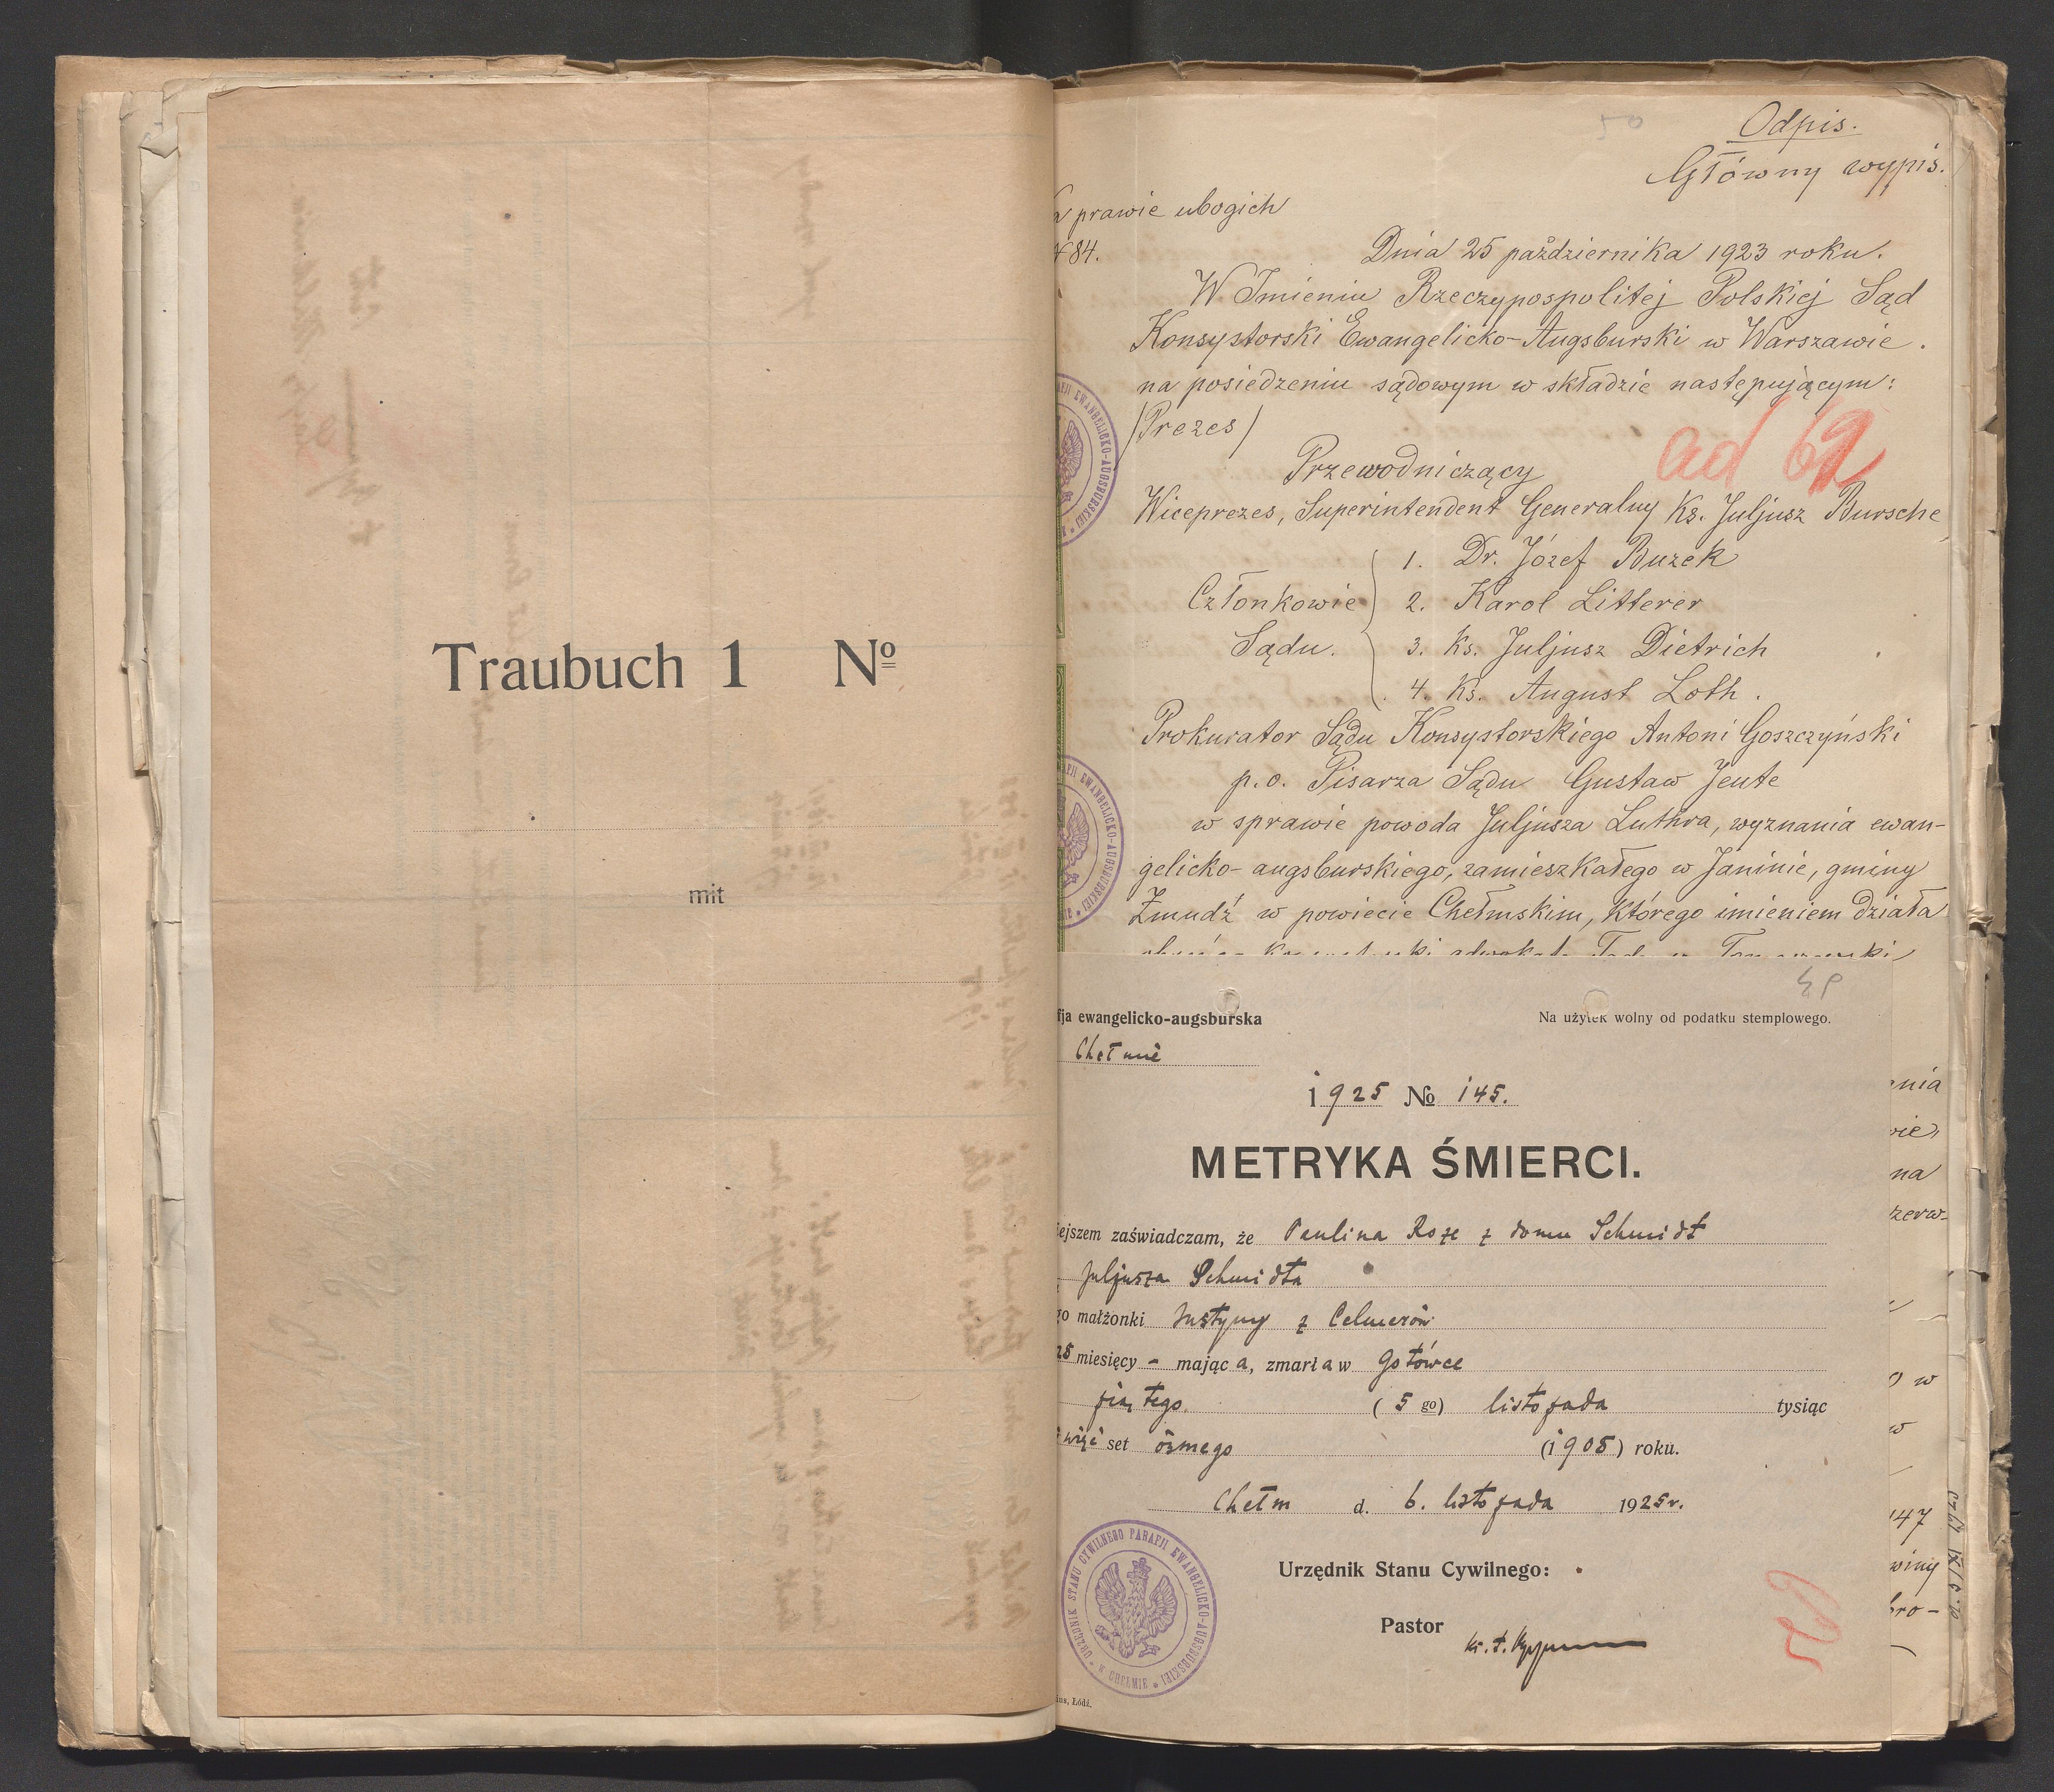 Traubuch 1 No
mit
50
Odpis.
Główny wypis.
prawie ubogich
84.
Dnia 25 października 1923 roku.
W Imieniu Rzeczypospolitej Polskiej Sąd
Konsystorski Ewangelicko-Augsburski w Warszawie.
na posiedzeniu sądowym w składzie następującym:
/Prezes/
ad 62
Przewodniczący
Wiceprezes, Superintendent Generalny Ks. Juljusz Bursche
Członkowie Sądu.
1. Dr. Józef Buzek
2. Karol Litterer
3. Ks. Juljusz Dietrich
4. Ks. August Loth.
Prokurator Sądu Konsystorskiego Antoni Goszczyński
p.o. Pisarza Sądu Gustaw Jeute
w sprawie powoda Juljusza Luthra, wyznania ewan-
gelicko-augsburskiego, zamieszkałego w Janinie, gminy
Żmudź w powiecie Chełmskim, którego imieniem działa
fja ewangelicko-augsburska
Na użytek wolny od podatku stemplowego.
Chełmie
1925 No 145.
METRYKA ŚMIERCI.
ejszem zaświadczam, że Paulina Roze z domu Schmidt
Juljusza Schmidta
go małżonki Justyny z Celmerów
28 miesięcy - mając a, zmarła w Gotówce
piątego (5 go) listopada tysiąc
set ósmego (1908) roku.
Chełm d. 6. listopada 1925 r.
Urzędnik Stanu Cywilnego:
Pastor
URZĘDNIK STANU CYWILNEGO PARAFJI EWANGELICKO-AUGSBURSKIEJ
W CHEŁMIE
Łódź.